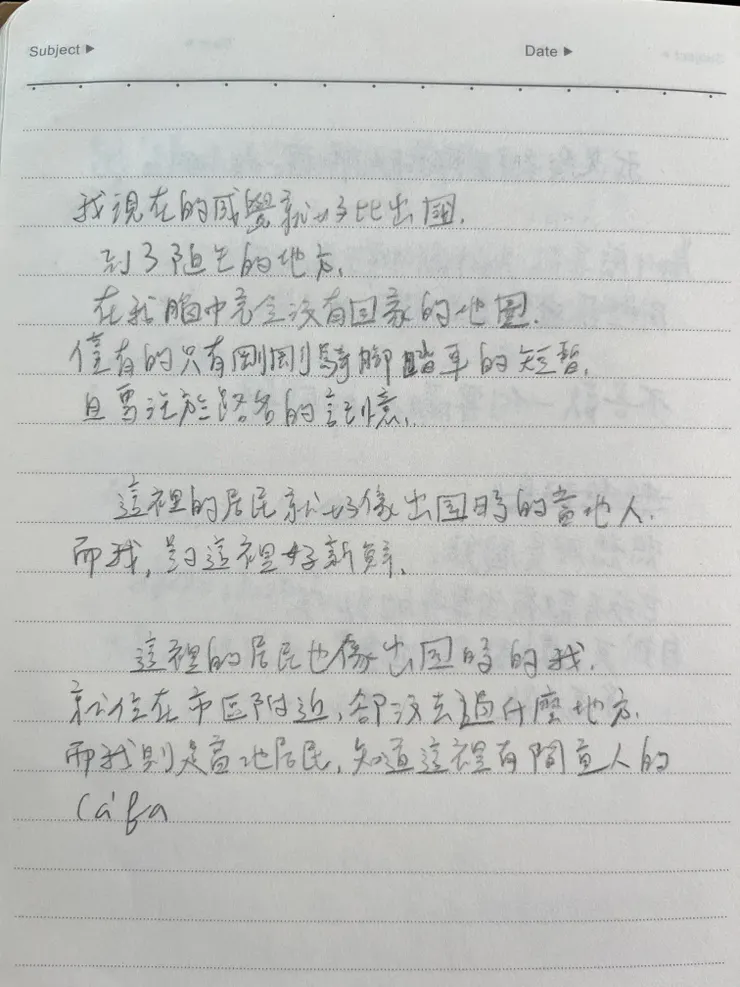 Subject ▶ Date ▶
我現在的感覺就好比出國,
到了陌生的地方,
在我腦中完全沒有回家的地圖.
僅有的只有剛剛騎腳踏車的短暫,
且專注於路名的記憶.
這裡的居民就好像出國時的當地人.
而我, 對這裡好新鮮.
這裡的居民也像出國時的我.
就住在市區附近, 卻沒去過什麼地方.
而我則是當地居民, 知道這裡有間直人的